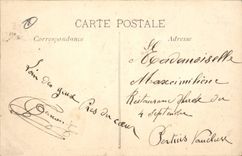 CARTE POSTALE
Correspondance
Adresse
Loin des yeux Près du cœur
Mademoiselle
Maximilienne
Restaurant place du
4 septembre
Pertuis Vaucluse